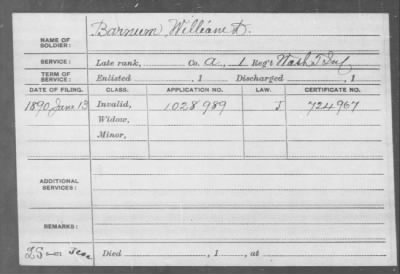 NAME OF SOLDIER: Barnum William D.
SERVICE: Late rank, Co. A, 1 Reg't Wash T Inf
TERM OF SERVICE: Enlisted , 1 Discharged , 1
DATE OF FILING. CLASS. APPLICATION NO. LAW. CERTIFICATE NO.
1890 June 13 Invalid, 1028989 J 724967
Widow,
Minor,
ADDITIONAL SERVICES:
REMARKS:
Died , 1 , at